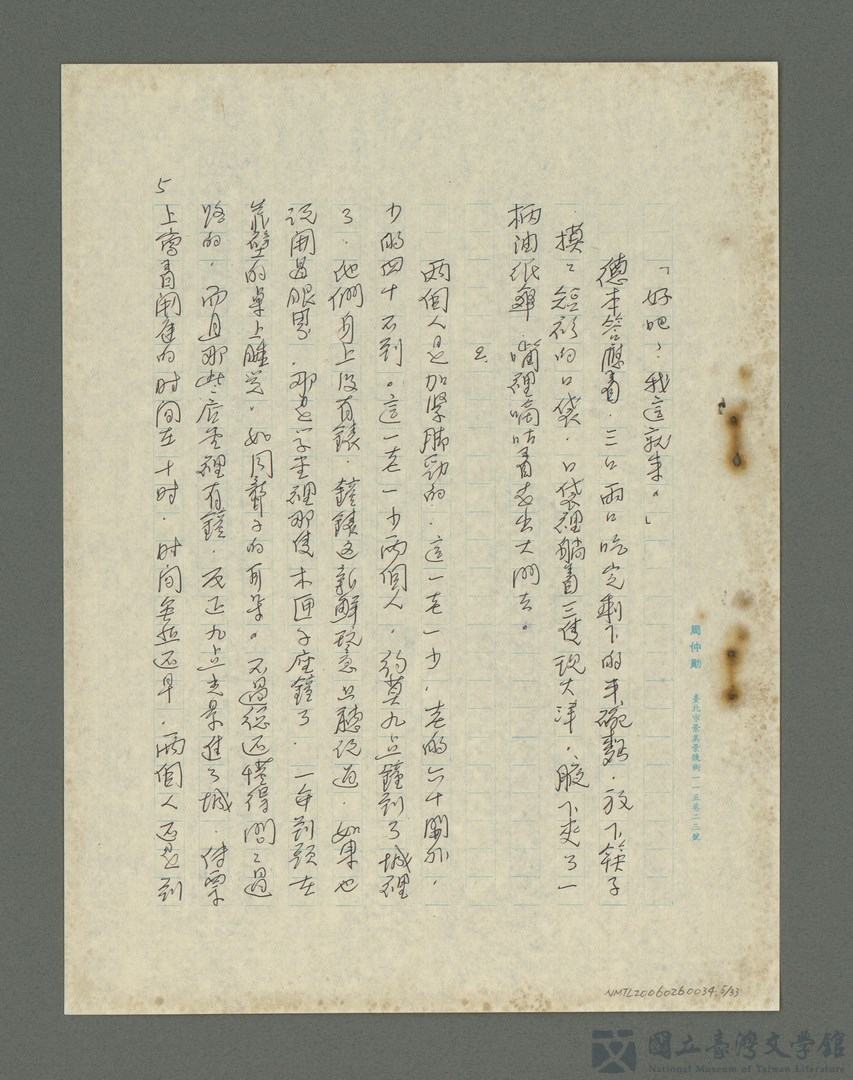 「好吧，我這就來。」
德本答應着．三口兩口吃完剩下的半碗麵．放下筷子
摸摸短衫的口袋．口袋裡躺着三隻現大洋，腋下夾了一
柄油纸傘．嘴裡嘀咕着走出大門去。
2.
兩個人是加緊脚勁的．這一老一少．老的六十開外．
少的四十不到。這一老一少兩個人．約莫九点鐘到了城裡
了．他們身上没有錶．鐘錶这新鮮玩意只聽说过．如果也
说開過眼界．那是学堂裡那隻木匣子座鐘了．一年到頭在
靠壁的桌上睡觉．如同聾子的耳朵。不過總还懂得問問過
路的．而且那些店堂裡有鐘．反正九点光景進了城．传票
上寫着開庭的时间在十时．时间還早．兩個人还是到
5
周仲勛
臺北市景美景後街一一五巷二三號
NMTL20060260034.5/33
國立臺灣文學館
National Museum of Taiwan Literature